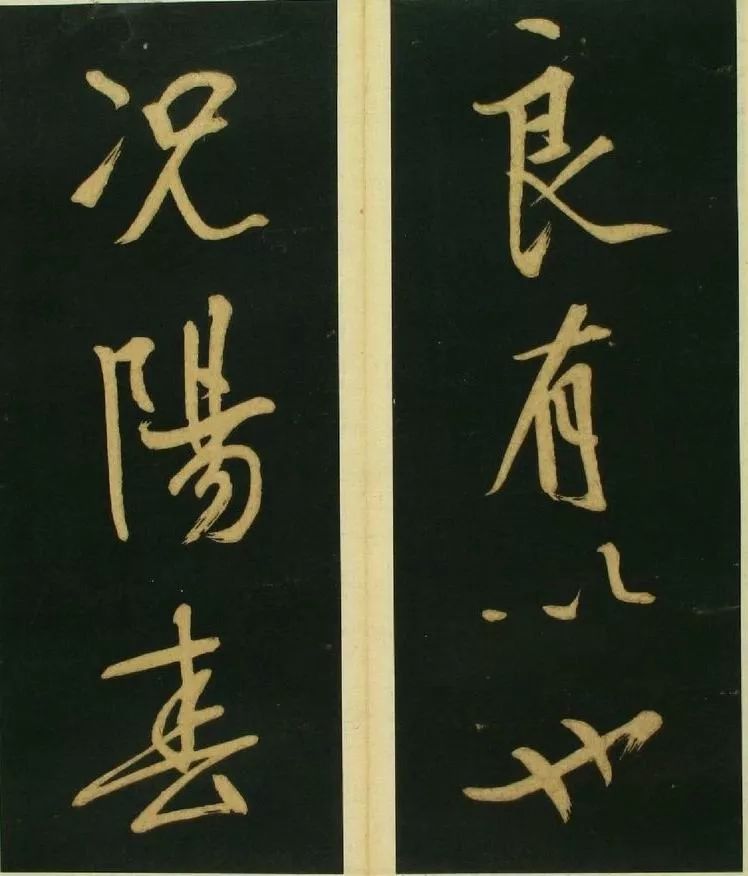 良有以也
况陽春